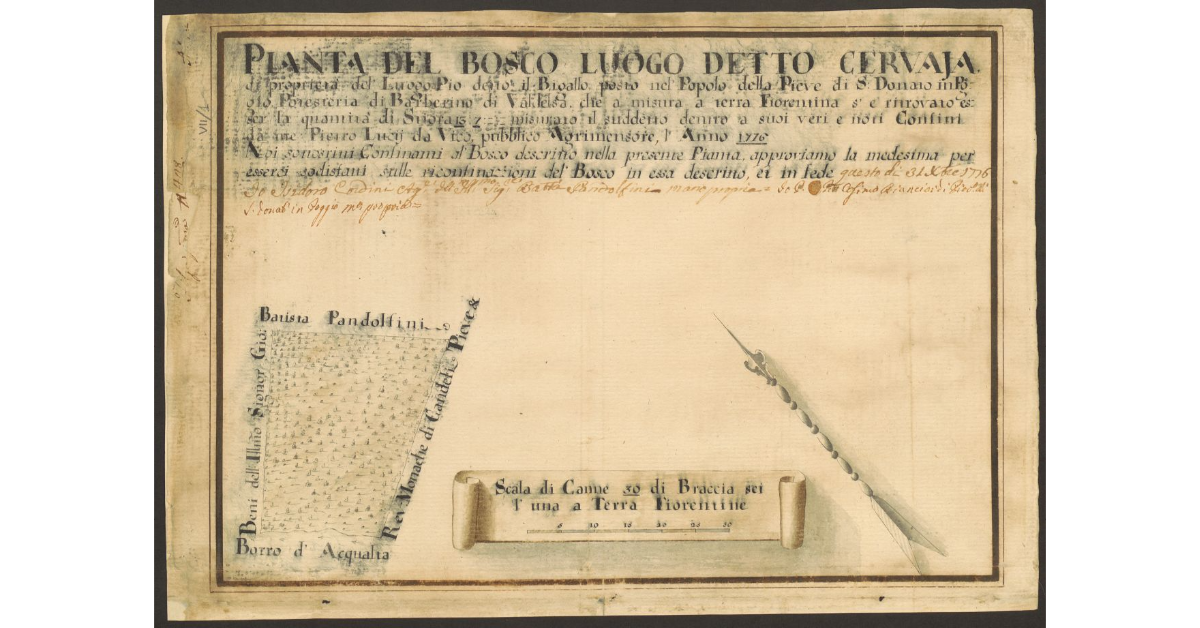 PIANTA DEL BOSCO LUOGO DETTO CERVAJA.
di proprietà del Luogo Pio detto il Bigallo, posto nel Popolo della Pieve di S. Donato in Po
gio, Poresteria di Barberino di Valdelsa, che a misura a terra Fiorentina s' è ritrovato es
ser la quantità di misurato il suddetto dentro a suoi veri e noti Confini
da me Pietro Lucij da Vico, pubblico Agrimensore, l' Anno 1776
Noi sottoscritti Confinanti al Bosco descritto nella presente Pianta, approviamo la medesima per
esserci sodisfatti sulle riconfinazioni del Bosco in essa descritto, et in fede questo dì 31 Xbre 1776
Io Isidoro mano propria
S. Donato in Poggio mº propria
VII/1
Batista Pandolfini
Beni dell' Illmo Signor Gio:
Rev Monache di Candeli = Pieve &
Borro d' Acqualta
Scala di Canne 30 di Braccia sei
l' una a Terra Fiorentine
10 20 30